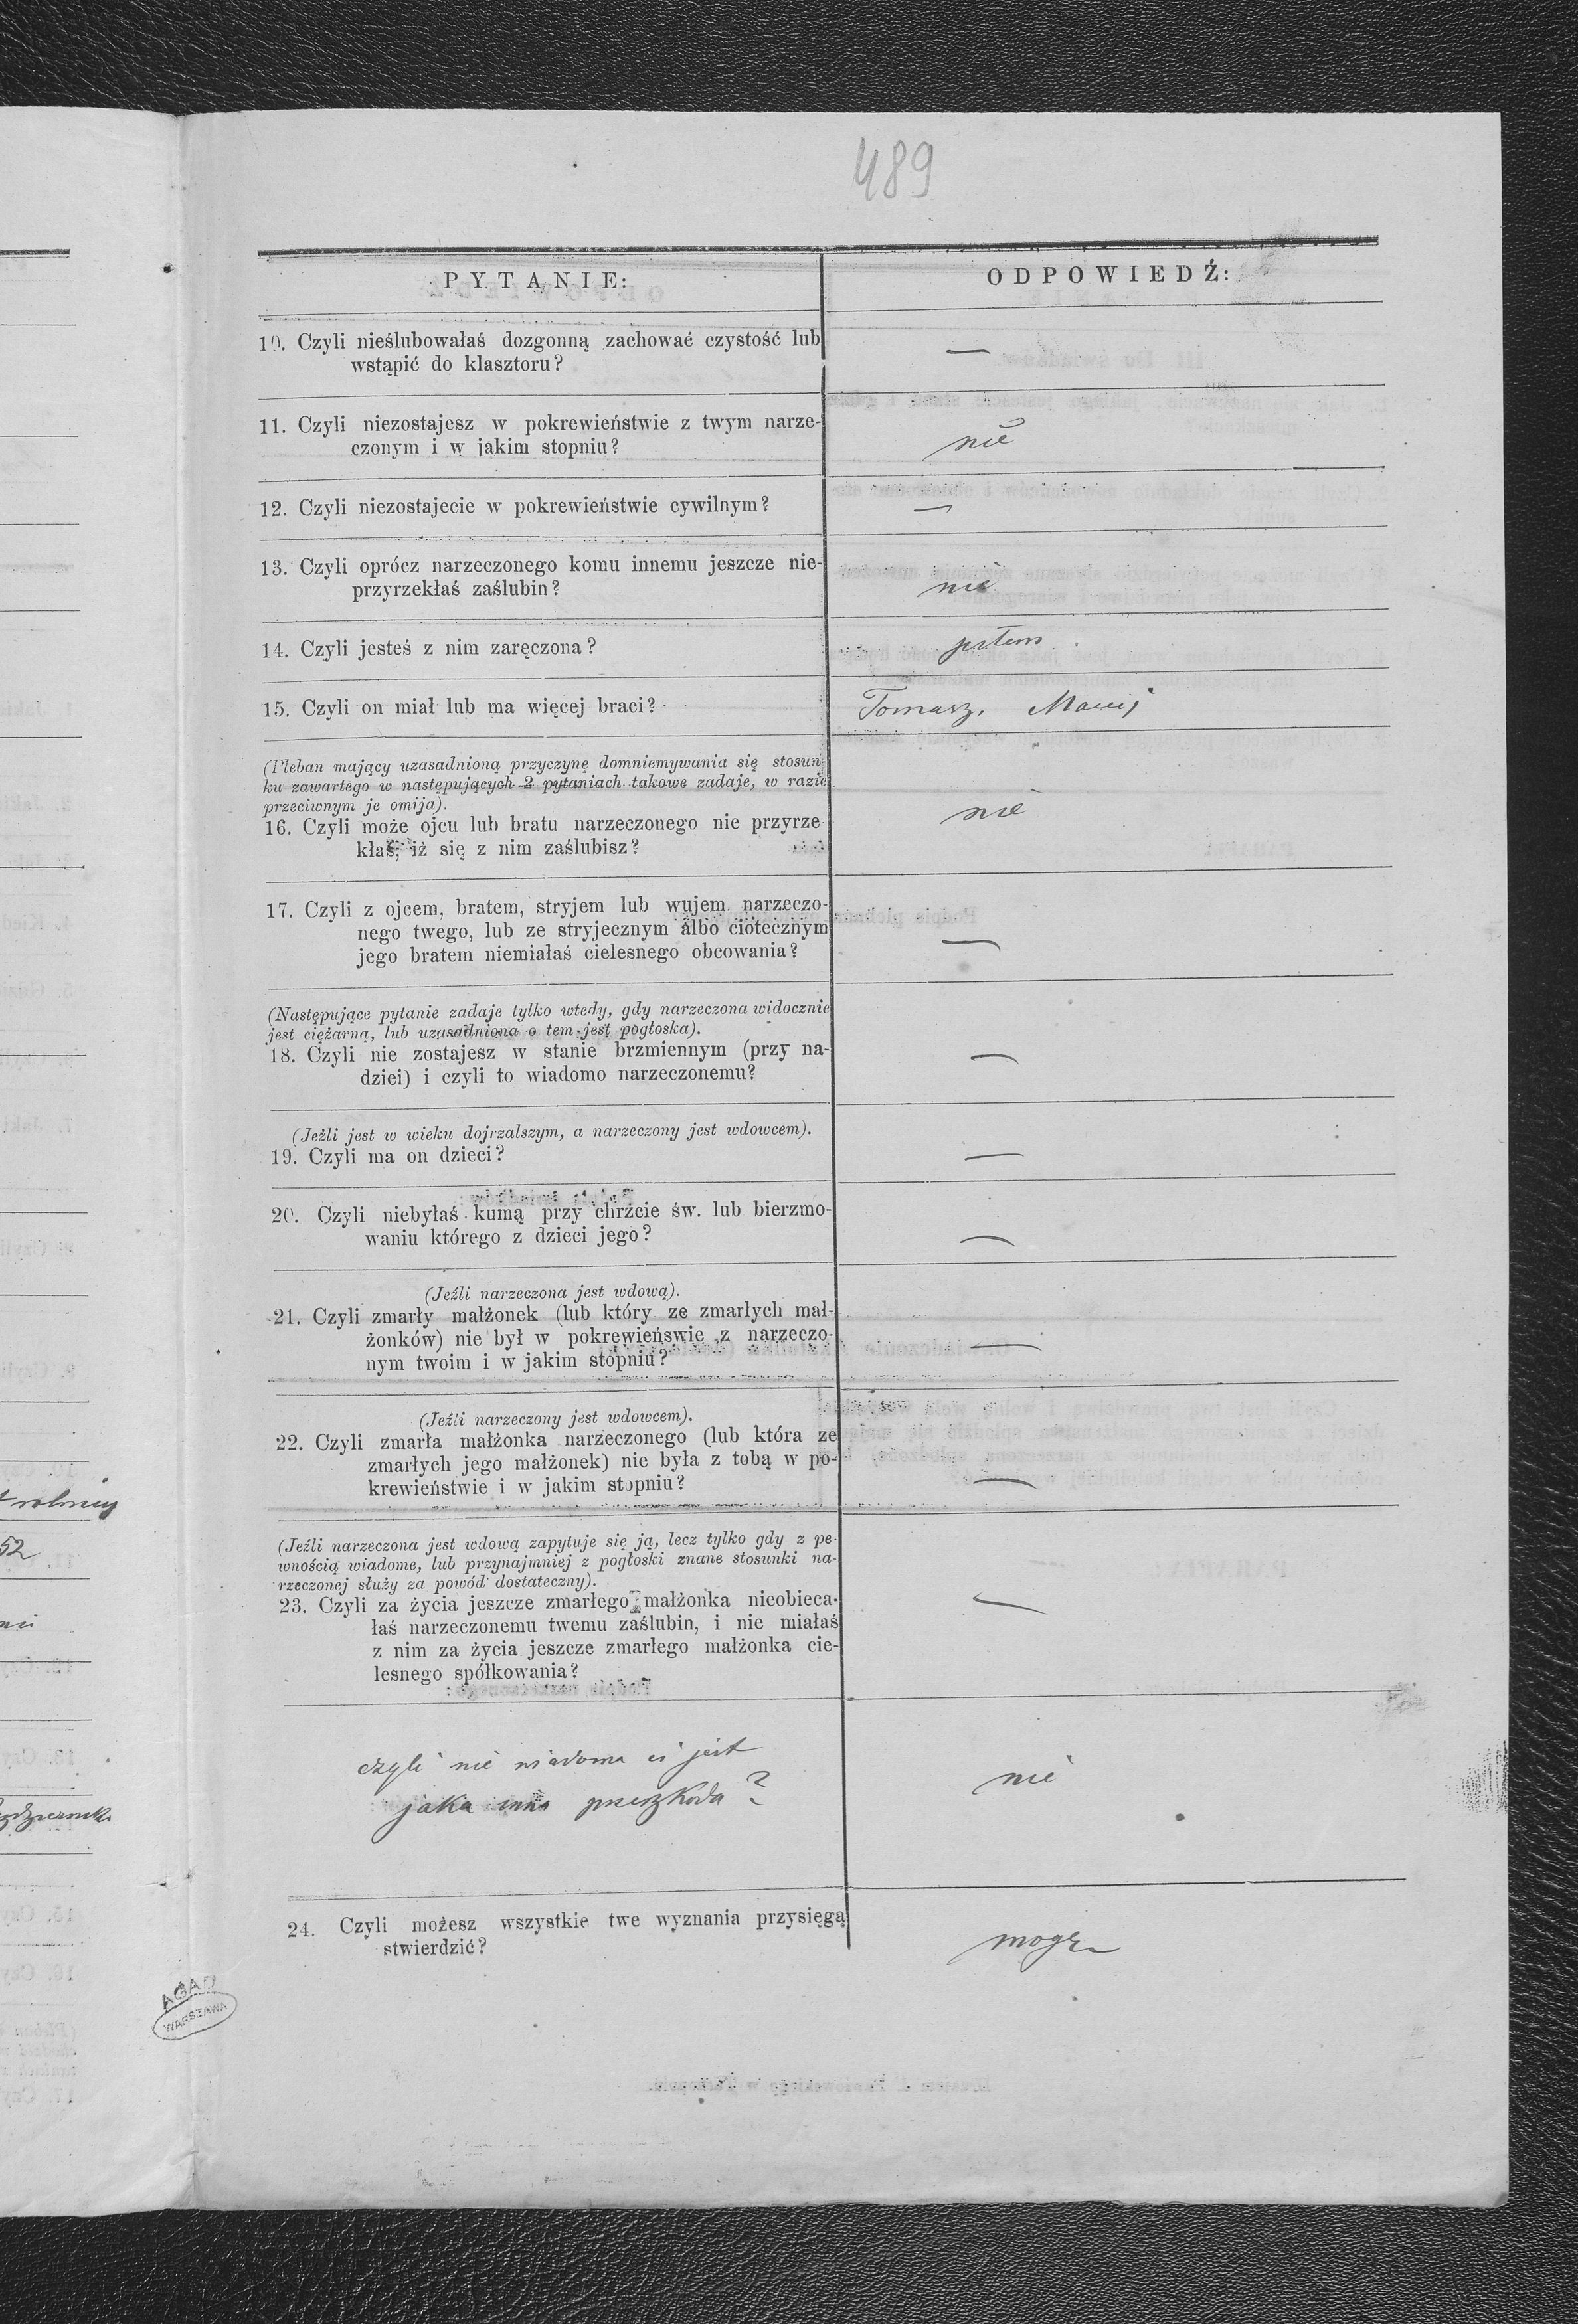 489
PYTANIE:
ODPOWIEDŹ:
10. Czyli nieślubowałaś dozgonną zachować czystość lub
wstąpić do klasztoru?
—
11. Czyli niezostajesz w pokrewieństwie z twym narze-
czonym i w jakim stopniu?
nie
12. Czyli niezostajecie w pokrewieństwie cywilnym?
—
13. Czyli oprócz narzeczonego komu innemu jeszcze nie-
przyrzekłaś zaślubin?
nie
14. Czyli jesteś z nim zaręczona?
jestem
15. Czyli on miał lub ma więcej braci?
Tomasz, Maciej
(Pleban mający uzasadnioną przyczynę domniemywania się stosun-
ku zawartego w następujących 2 pytaniach takowe zadaje, w razie
przeciwnym je omija).
16. Czyli może ojcu lub bratu narzeczonego nie przyrze-
kłaś, iż się z nim zaślubisz?
nie
17. Czyli z ojcem, bratem, stryjem lub wujem narzeczo-
nego twego, lub ze stryjecznym albo ciotecznym
jego bratem niemiałaś cielesnego obcowania?
—
(Następujące pytanie zadaje tylko wtedy, gdy narzeczona widocznie
jest ciężarną, lub uzasadniona o tem jest pogłoska).
18. Czyli nie zostajesz w stanie brzmiennym (przy na-
dziei) i czyli to wiadomo narzeczonemu?
—
(Jeźli jest w wieku dojrzalszym, a narzeczony jest wdowcem).
19. Czyli ma on dzieci?
—
20. Czyli niebyłaś kumą przy chrzcie św. lub bierzmo-
waniu którego z dzieci jego?
—
(Jeźli narzeczona jest wdową).
21. Czyli zmarły małżonek (lub który ze zmarłych mał-
żonków) nie był w pokrewieńswie z narzeczo-
nym twoim i w jakim stopniu?
—
(Jeźli narzeczony jest wdowcem).
22. Czyli zmarła małżonka narzeczonego (lub która ze
zmarłych jego małżonek) nie była z tobą w po-
krewieństwie i w jakim stopniu?
—
(Jeźli narzeczona jest wdową zapytuje się ją, lecz tylko gdy z pe-
wnością wiadome, lub przynajmniej z pogłoski znane stosunki na-
rzeczonej służy za powód dostateczny).
23. Czyli za życia jeszcze zmarłego małżonka nieobieca-
łaś narzeczonemu twemu zaślubin, i nie miałaś
z nim za życia jeszcze zmarłego małżonka cie-
lesnego spółkowania?
—
czyli nie wiadoma ci jest
jaka inna przeszkoda?
nie
24. Czyli możesz wszystkie twe wyznania przysięgą
stwierdzić?
mogę
AGAD
WARSZAWA
52